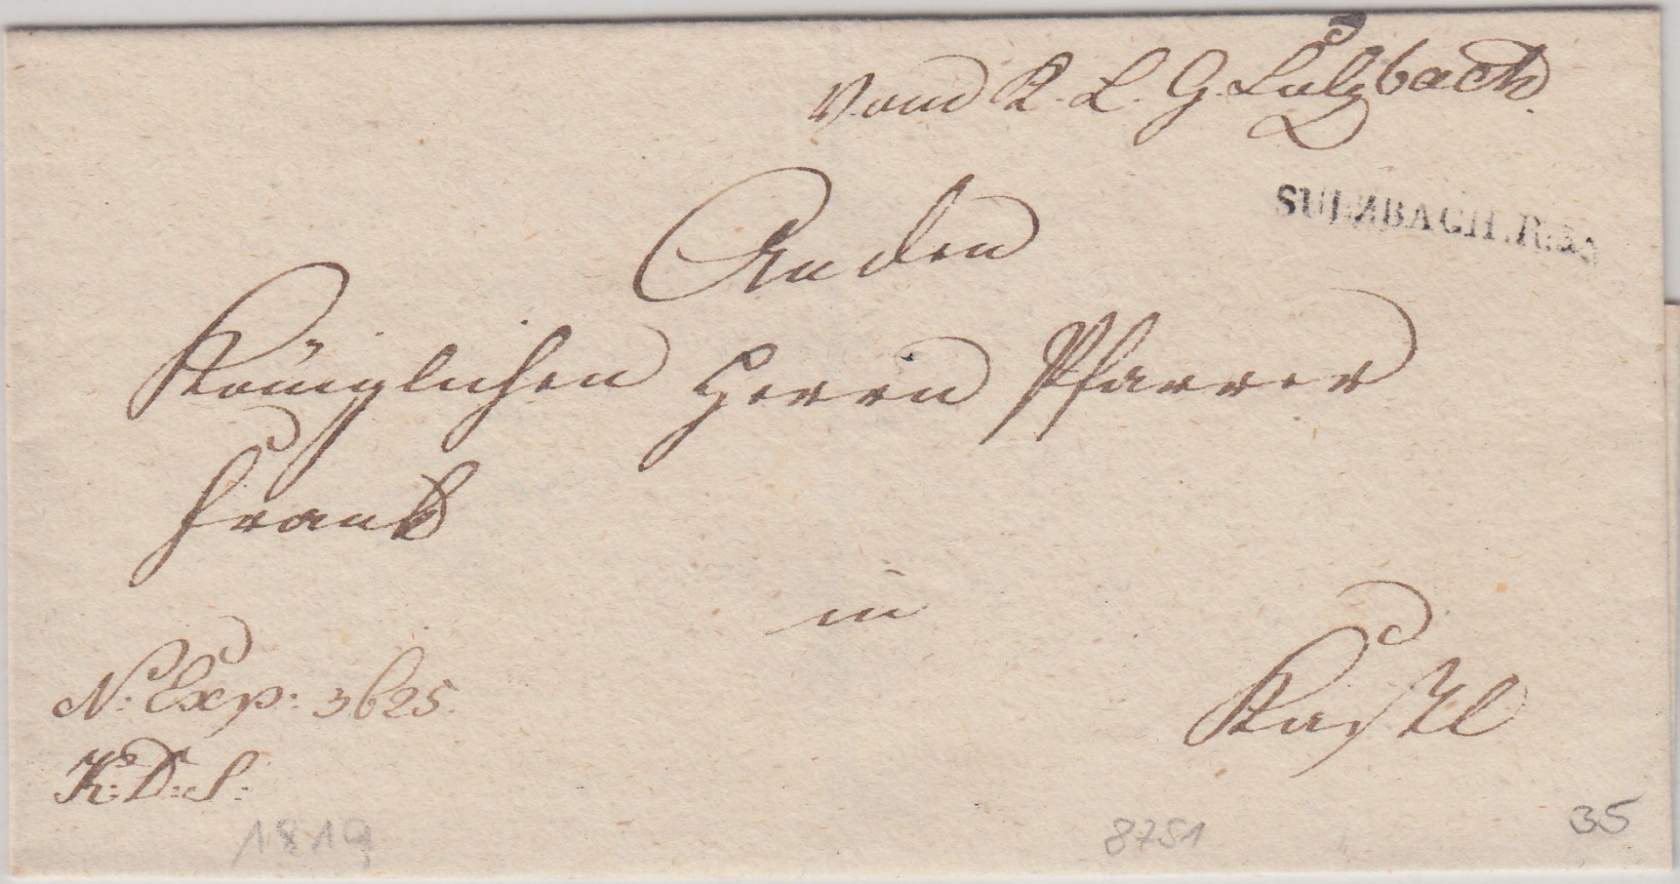 Vom K. L. G. Sulzbach.
SULZBACH.R.3.
An den
Königlichen Herrn Pfarrer
Frank
in
Kastl
N: Exp: 3625.
K: D: S:
1819
8751
35